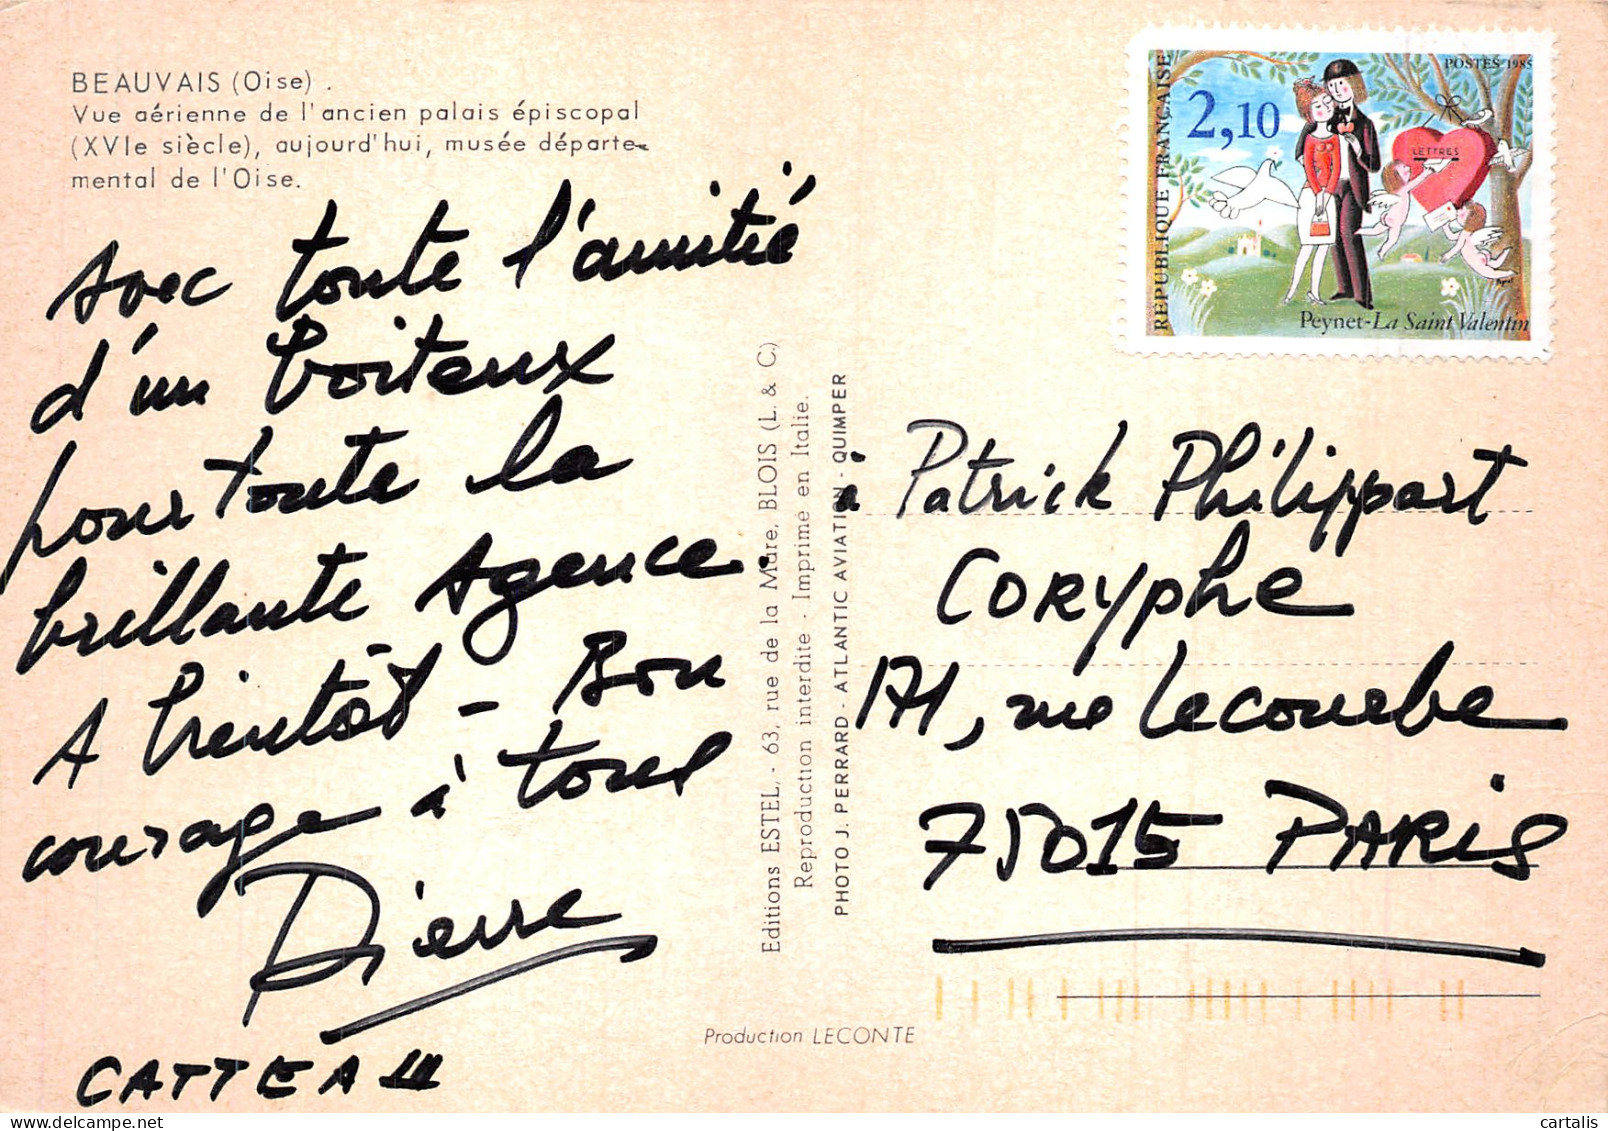 BEAUVAIS (Oise).
Vue aérienne de l'ancien palais épiscopal
(XVIe siècle), aujourd'hui, musée départe-
mental de l'Oise.
Avec toute l'amitié
d'un boiteux
pour toute la
brillante Agence.
A bientôt - Bon
courage à tous
Pierre
CATTEAU
Editions ESTEL, - 63, rue de la Mare, BLOIS (L. & C.)
Reproduction interdite - Imprime en Italie.
PHOTO J. PERRARD - ATLANTIC AVIATION - QUIMPER
Production LECONTE
REPUBLIQUE FRANÇAISE
POSTES 1985
2,10
LETTRES
Peynet-La Saint Valentin
à Patrick Philippart
CORYPHE
171, rue Lecourbe
75015 PARIS
cartalis